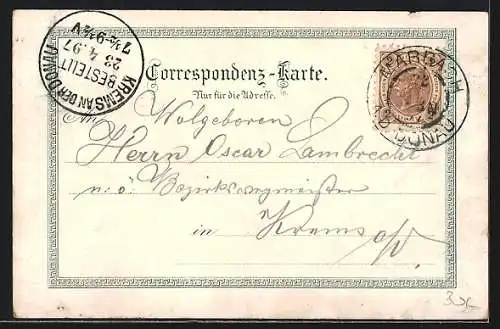 KREMS AN DER DONAU
BESTELLT
23.4.97
7½-9½V
MARBACH
DONAU
Correspondenz-Karte.
Nur für die Adresse.
An Wolgeboren
Herrn Oscar Lambrecht
n: ö: Bezirkswegmeister
in Krems a/D.